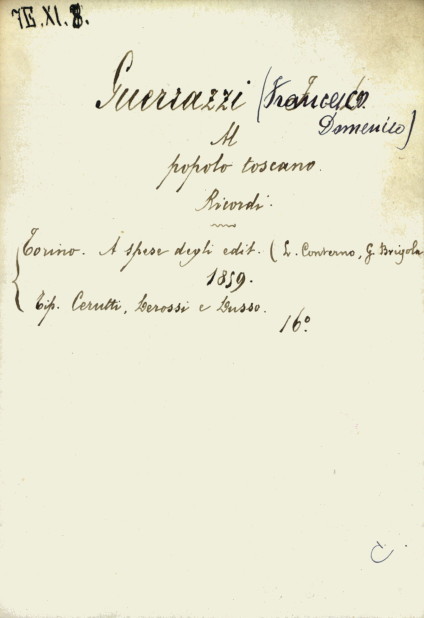 76.XI.8.
Guerrazzi (Francesco
Domenico)
Al
popolo toscano.
Ricordi.
Torino. A spese degli edit. (L. Conterno, G. Brigola
1859.
Tip. Cerutti, Derossi e Dusso.
16°
C.